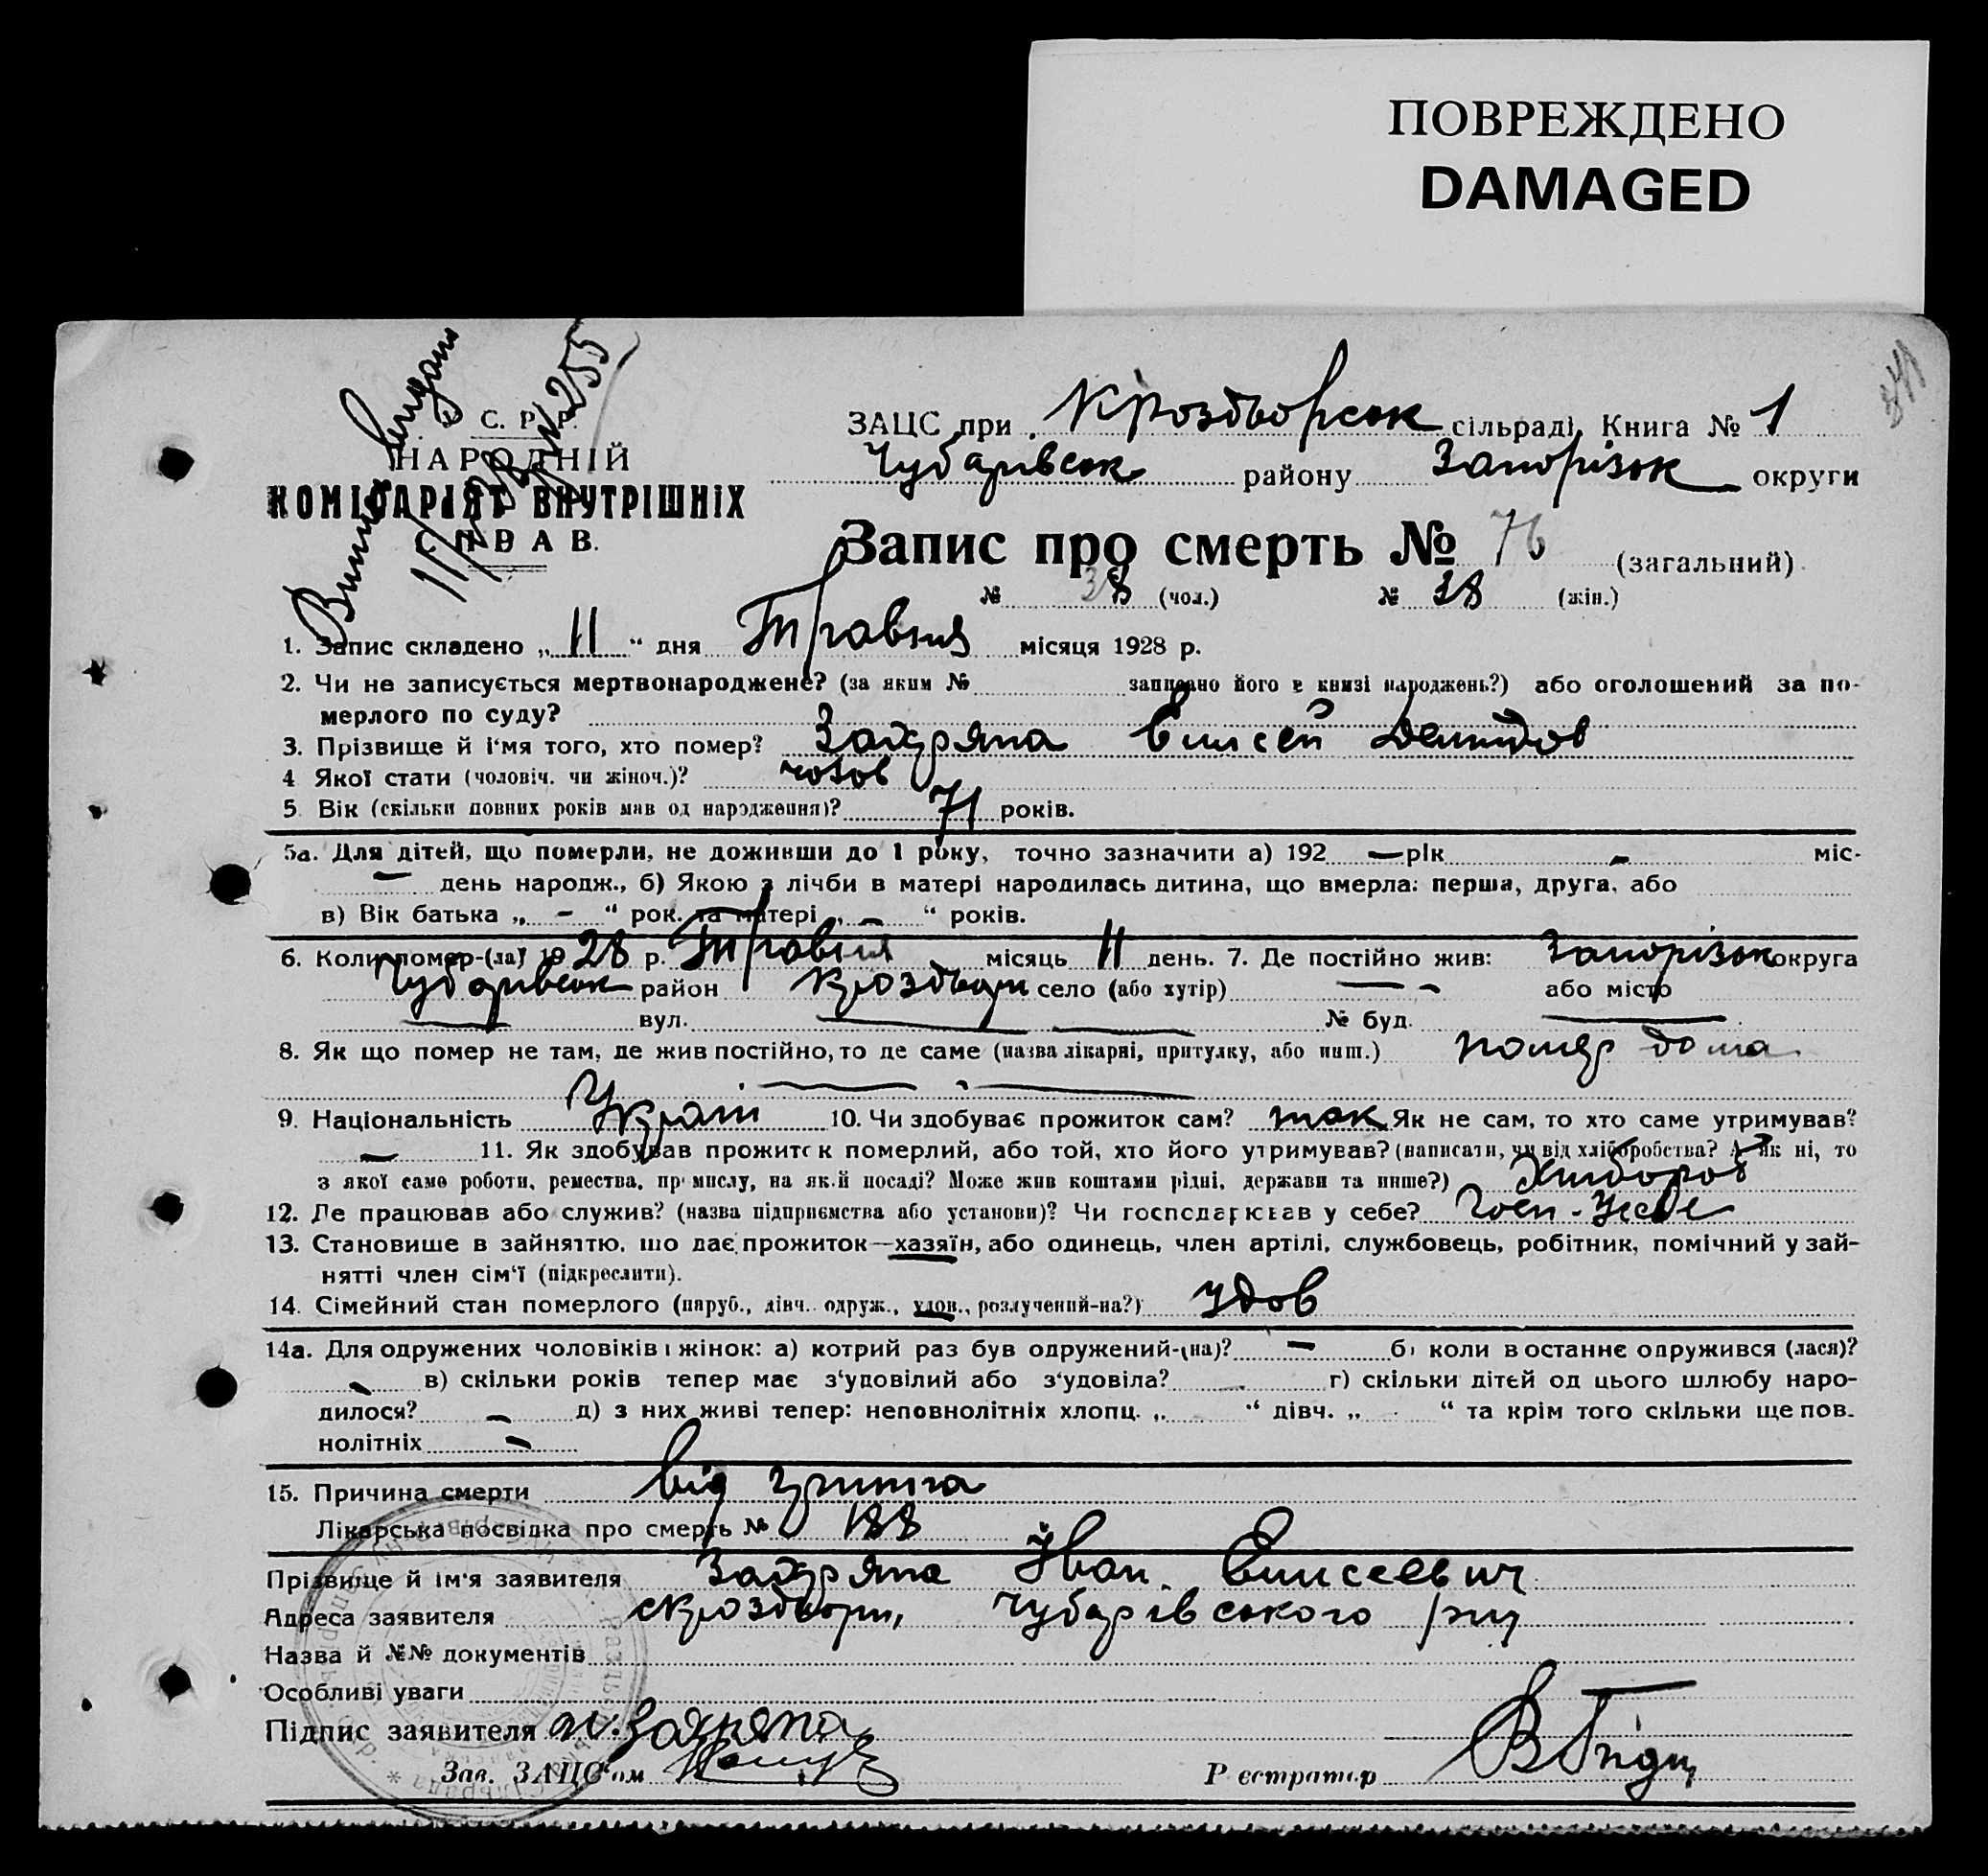 ПОВРЕЖДЕНО
DAMAGED
У. С. Р. Р.
НАРОДНІЙ
КОМІСАРІЯТ ВНУТРІШНІХ
СПРАВ.
ЗАЦС при Кроздворськ сільраді, Книга № 1
Чубарівськ району Запорізьк округи
Запис про смерть № 76 (загальний)
№ 38 (чол.) № 38 (жін.)
1. Запис складено „11“ дня Травня місяця 1928 р.
2. Чи не записується мертвонароджене? (за яким № записано його в книзі народжень?) або оголошений за по-
мерлого по суду?
3. Прізвище й і'мя того, хто помер? Захряпа Елисей Демидов
4 Якої стати (чоловіч. чи жіноч.)? чолов
5. Вік (скільки повних років мав од народження)? 71 років.
5а. Для дітей, що померли, не доживши до 1 року, точно зазначити а) 192 — рік - міс-
— день народж., б) Якою з лічби в матері народилась дитина, що вмерла: перша, друга, або
в) Вік батька „ - “ рок. та матері „ - “ років.
6. Коли помер-(ла) 1928 р. Травня місяць 11 день. 7. Де постійно жив: Запорізьк округа
Чубарівськ район Кроздвори село (або хутір) — - або місто
— вул. — № буд. —
8. Як що помер не там, де жив постійно, то де саме (назва лікарні, притулку, або инш.) помер дома
9. Національність Україн 10. Чи здобуває прожиток сам? так Як не сам, то хто саме утримував?
— 11. Як здобував прожиток померлий, або той, хто його утримував? (написати, чи від хліборобства? А як ні, то
з якої саме роботи, ремества, промислу, на якій посаді? Може жив коштами рідні, держави та инше?) Хлибороб
12. Де працював або служив? (назва підприємства або установи)? Чи господарював у себе? Госп-Усебе
13. Становище в зайняттю, що дає прожиток—хазяїн, або одинець, член артілі, службовець, робітник, помічний у зай-
нятті член сім'ї (підкреслити).
14. Сімейний стан померлого (паруб., дівч. одруж., удов., розлучений-на?) удов
14а. Для одружених чоловіків і жінок: а) котрий раз був одружений-(на)? — б) коли востаннє одружився (лася)?
- в) скільки років тепер має з'удовілий або з'удовіла? - г) скільки дітей од цього шлюбу наро-
дилося? - д) з них живі тепер: неповнолітніх хлопц. „ “ дівч. „ “ та крім того скільки ще пов.
нолітніх -
15. Причина смерти від грипа
Лікарська посвідка про смерть № 188
Прізвище й ім'я заявителя Захряпа Іван Елисеевич
Адреса заявителя Кроздвори, Чубарівського р-ну
Назва й №№ документів
Особливі уваги
Підпис заявителя И. Захряпа
Зав. ЗАЦС'ом
Реєстратор